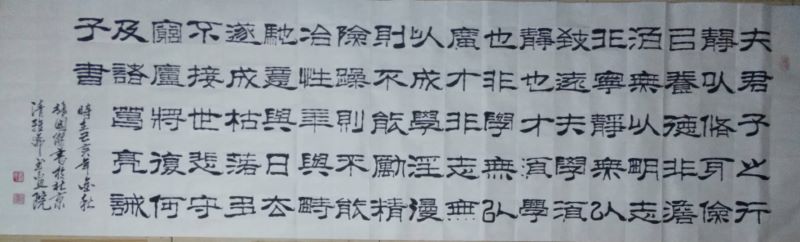 夫君子之行
靜以脩身儉
以養德非澹
泊無以明志
非寧靜無以
致遠夫學須
靜也才須學
也非學無以
廣才非志無
以成學淫漫
則不能勵精
險躁則不能
冶性年與時
馳意與日去
遂成枯落多
不接世悲守
窮廬將復何
及諸葛亮誡
子書
時在己亥年金秋
國傑書於北京
書画院